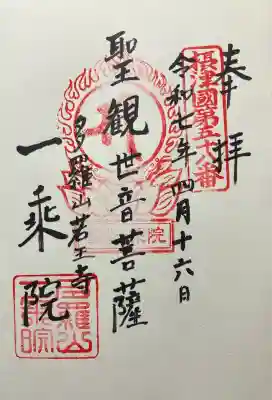 奉拝
摂津國第五十八番
令和七年四月十六日
聖観世音菩薩
多羅山若王寺
一乘院